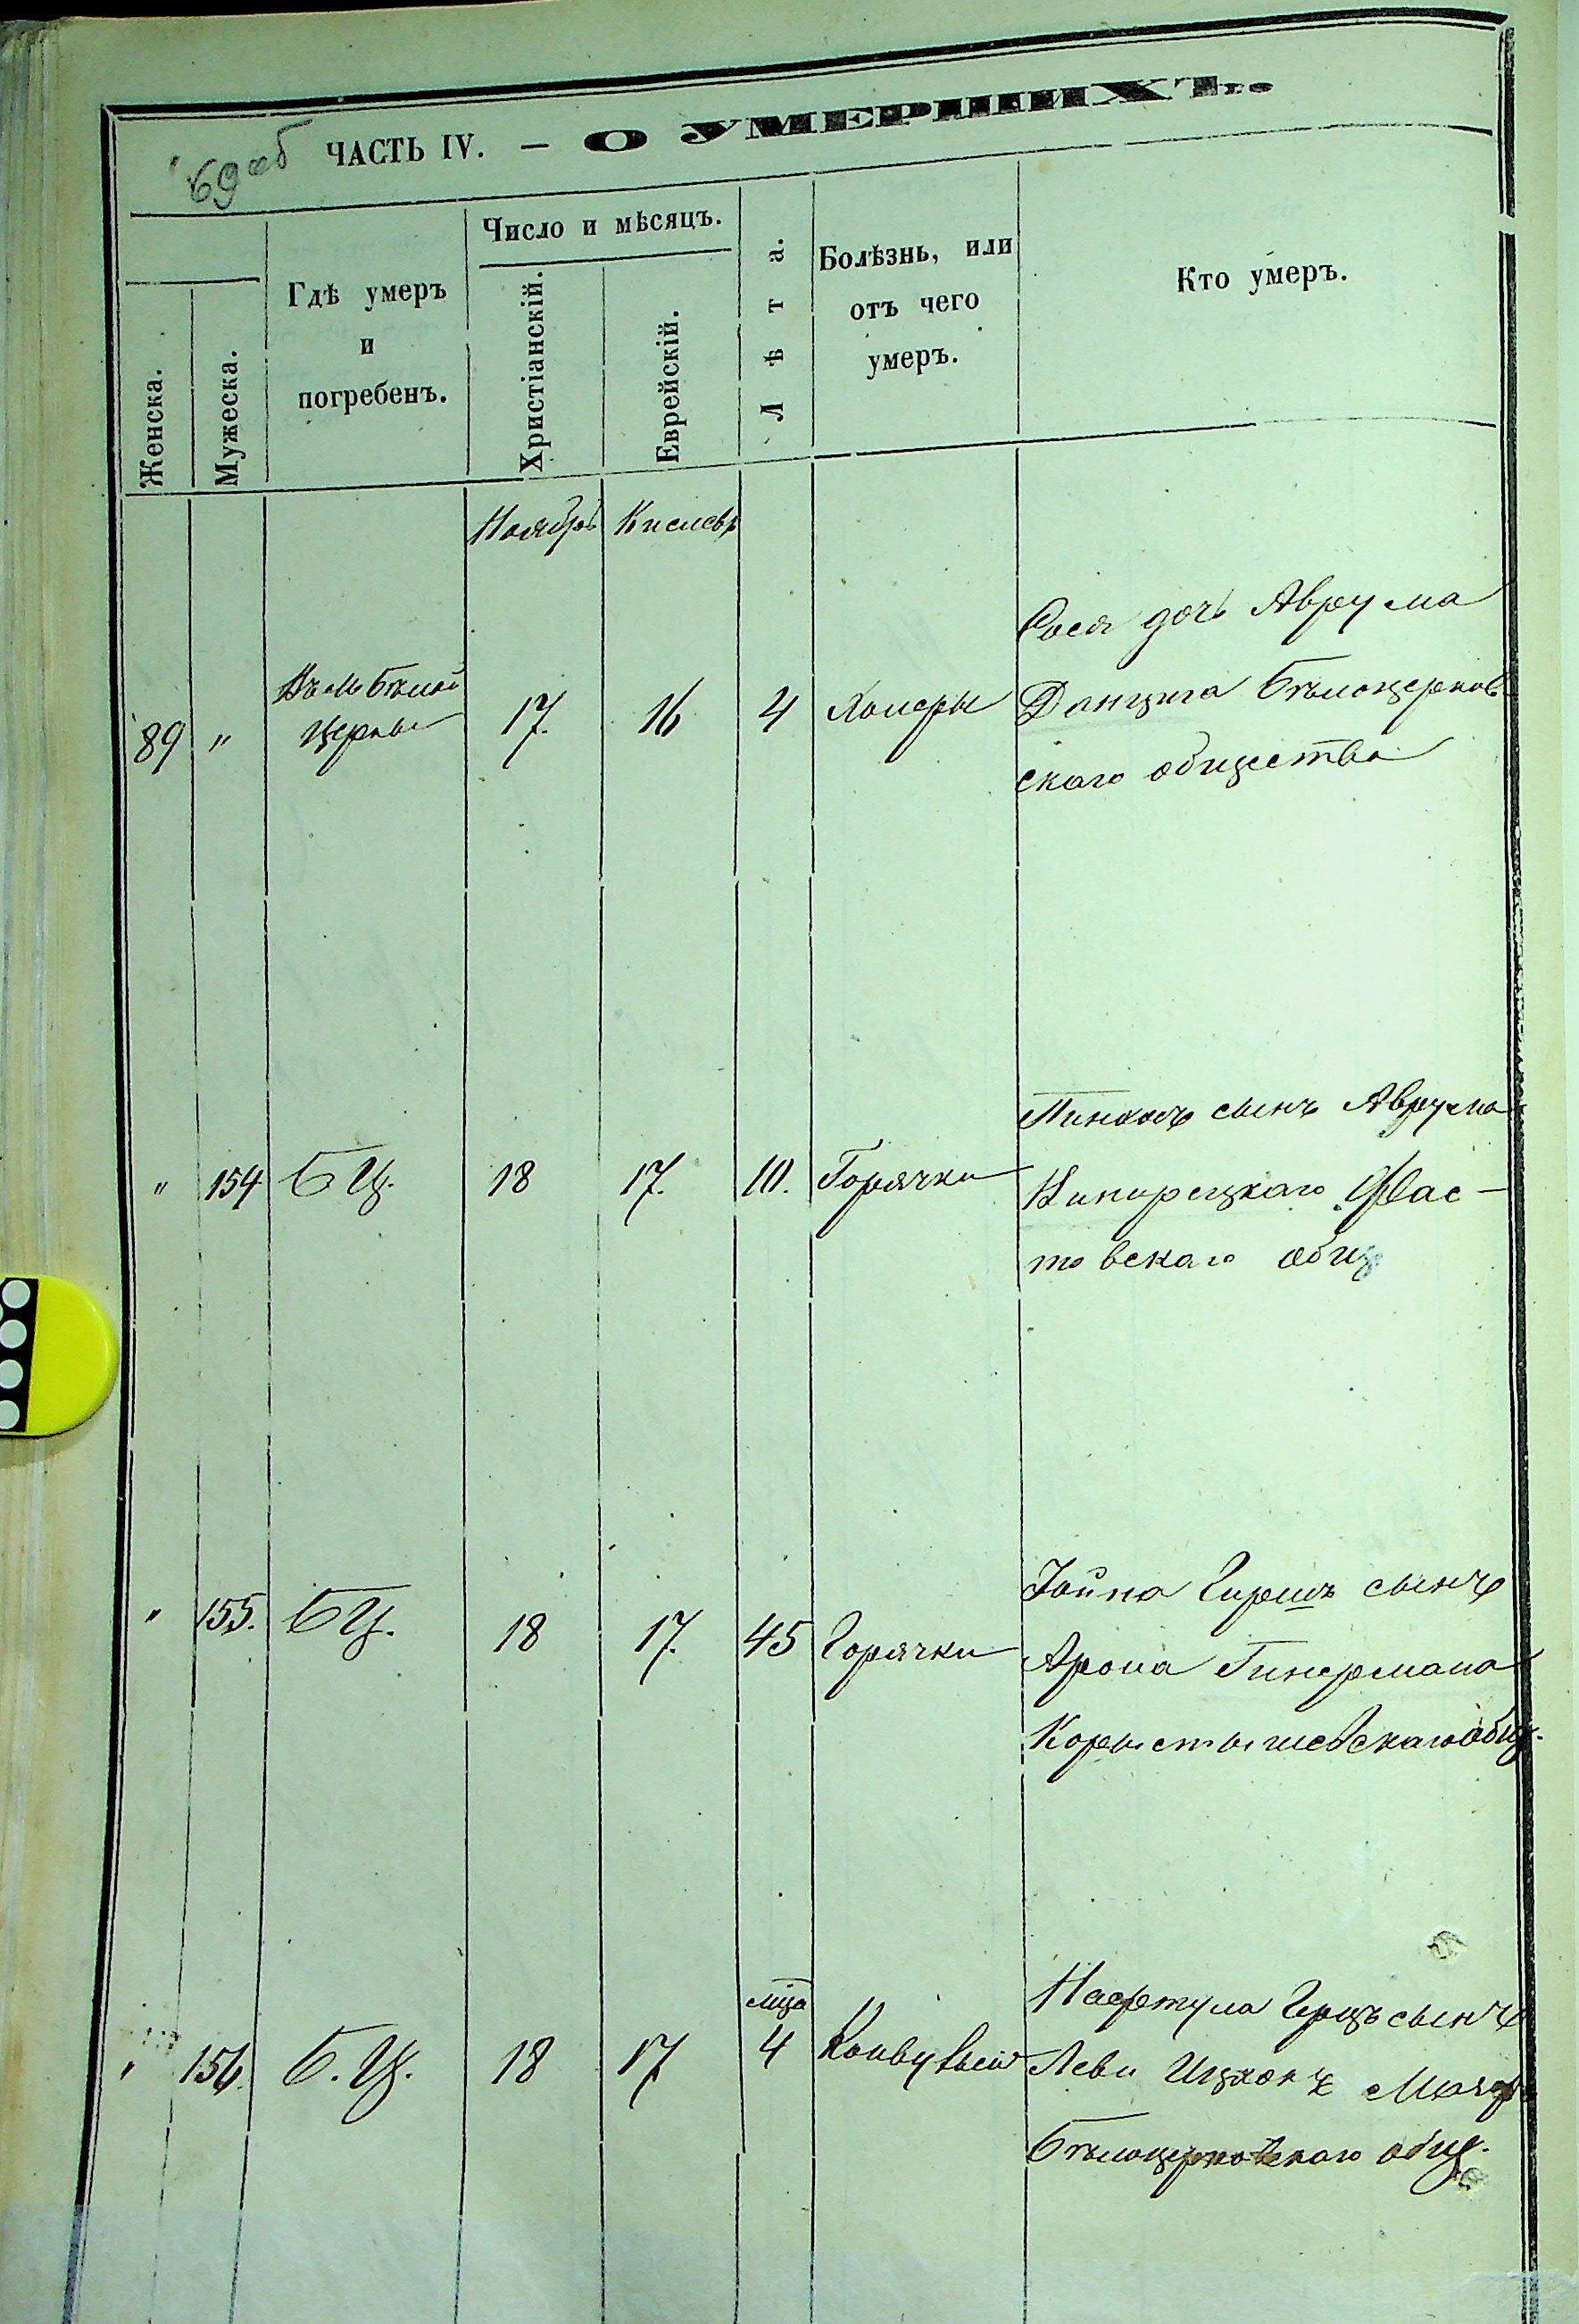 69 об
ЧАСТЬ IV. — О УМЕРШИХЪ.
Женска.
Мужеска.
Гдѣ умеръ
и
погребенъ.
Число и мѣсяцъ.
Христіанскій.
Еврейскій.
Лѣта.
Болѣзнь, или
отъ чего
умеръ.
Кто умеръ.
Ноябрь Кислевъ
89 " Въ м Бѣлой
Церкви 17. 16 4 Холеры
Сося дочь Аврума
Данцига Бѣлоцерков
скаго общества
" 154 Б Ц. 18 17. 10. Горячки
Пинхасъ сынъ Аврума
Фас-
товскаго общ
" 155. Б Ц. 18 17. 45 Горячки
Іойна Гершъ сынъ
Арона Гинермана
Коростышевскаго общ.
" 156. Б. Ц. 18 17 мца
4
Нафтула Герцъ сынъ
Леви Ицхокъ
Бѣлоцерковскаго общ.